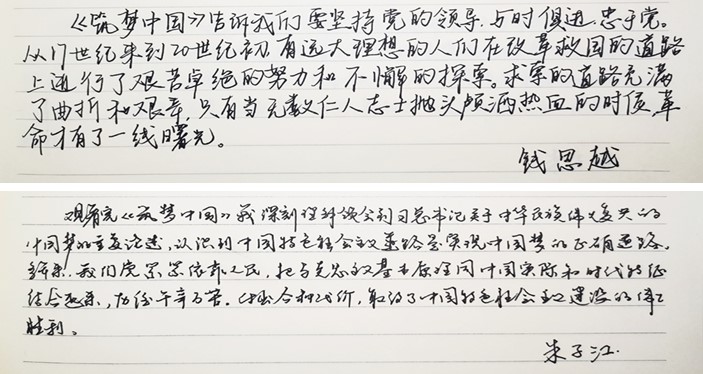 《筑梦中国》告诉我们要坚持党的领导,与时俱进,忠于党。
从19世纪末到20世纪初,有远大理想的人们在改革救国的道路
上进行了艰苦卓绝的努力和不懈的探索。求索的道路充满
了曲折和艰辛,只有当无数仁人志士抛头颅洒热血的时候,革
命才有了一线曙光。
钱思越
观看完《筑梦中国》我深刻理解领会到习总书记关于中华民族伟大复兴的
中国梦的重要论述,认识到中国特色社会主义道路是实现中国梦的正确道路。
多年来,我们党紧紧依靠人民,把马克思主义基本原理同中国实际和时代特征
结合起来,历经千辛万苦,付出各种代价,取得了中国特色社会主义建设的伟大
胜利。
朱子江